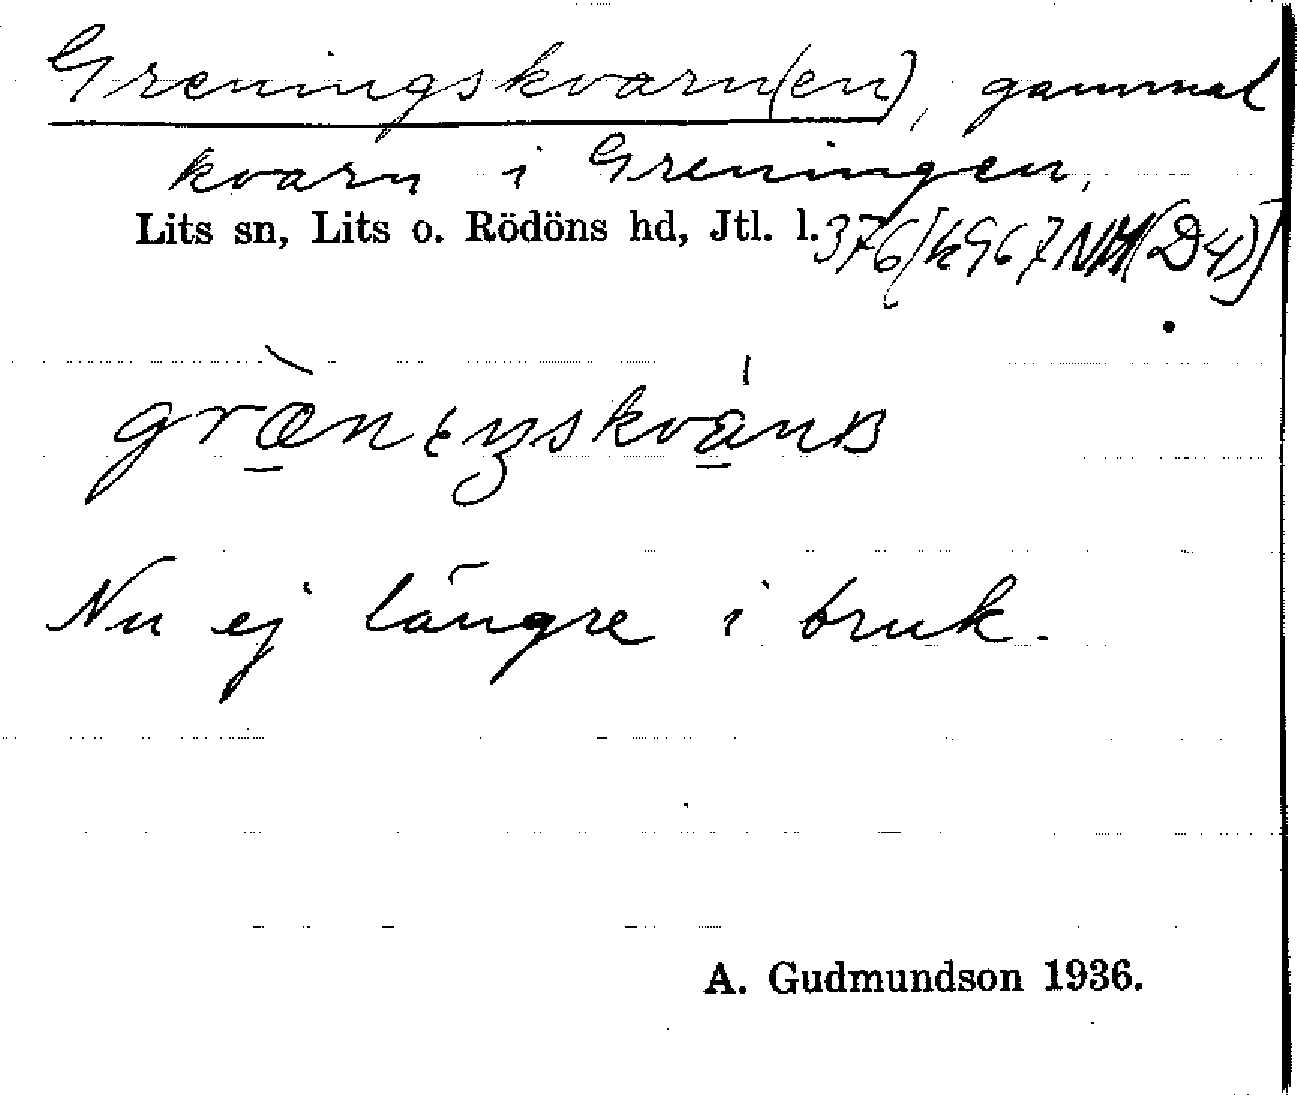 Greningskvarn(en), gammal
kvarn i Greningen,
Lits sn, Lits o. Rödöns hd, Jtl. l. 376 [k 967 NM (D4)]
Nu ej längre i bruk.
A. Gudmundson 1936.